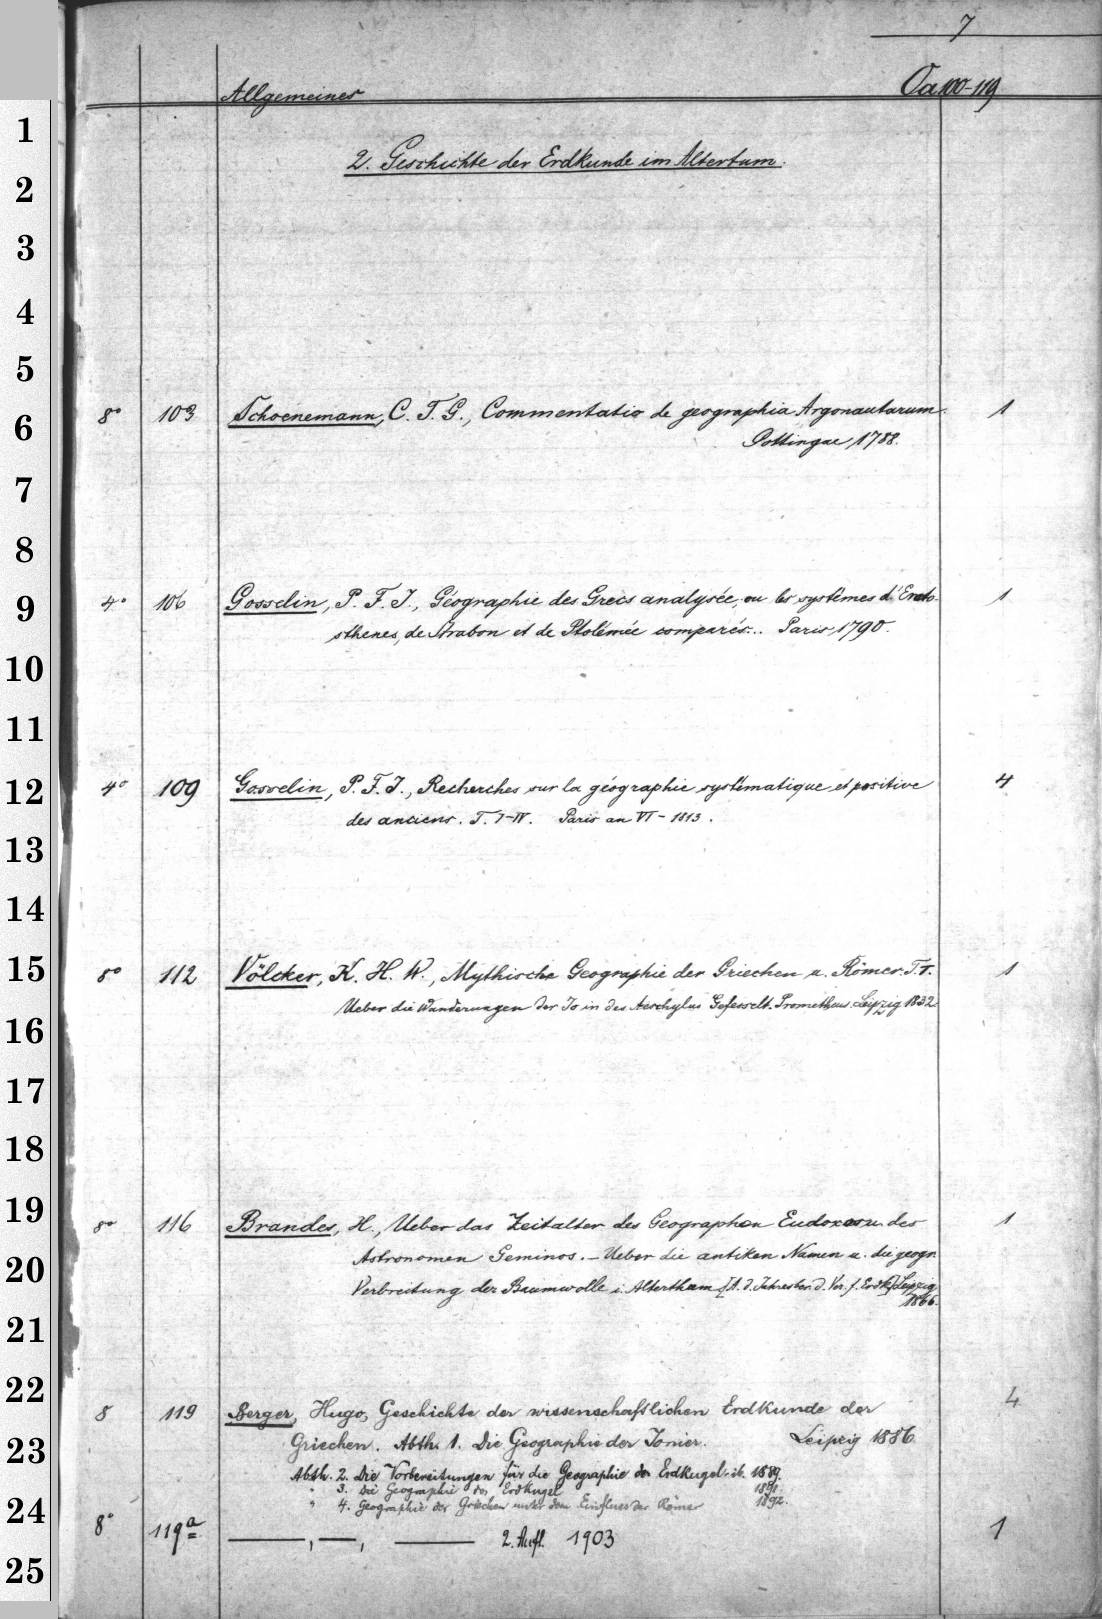 7
Allgemeines Oa 100-119
2. Geschichte der Erdkunde im Altertum.
8° 103 Schoenemann, C. T. G., Commentatio de geographia Argonautarum. 1
Gottingae, 1788.
4° 106 Gosselin, P. F. J., Géographie des Grecs analysée, ou les systêmes d'Erato- 1
sthenes, de Strabon et de Ptolémée comparés... Paris, 1790.
4° 109 Gosselin, P. F. J., Recherches sur la géographie systématique et positive 4
des anciens. T. I-IV. Paris an VI - 1813.
8° 112 Völcker, K. H. W., Mythische Geographie der Griechen u. Römer. T. 1. 1
Ueber die Wanderungen der Io in des Aeschylus Gefesselt. Prometheus. Leipzig 1832.
8° 116 Brandes, H., Ueber das Zeitalter des Geographen Eudoxos u. des 1
Astronomen Geminos. – Ueber die antiken Namen u. die geogr.
Verbreitung der Baumwolle i. Alterthum [A. d. Jahresber. d. Ver. f. Erdk.] Leipzig
1866.
8 119 Berger, Hugo, Geschichte der wissenschaftlichen Erdkunde der 4
Griechen. Abth. 1. Die Geographie der Ionier. Leipzig 1886
Abth. 2. Die Vorbereitungen für die Geographie der Erdkugel. ib. 1889.
" 3. Die Geographie der Erdkugel 1891.
" 4. Geographie der Griechen unter dem Einfluss der Römer 1892.
8° 119a ———, ——, ——— 2. Aufl. 1903 1
1
2
3
4
5
6
7
8
9
10
11
12
13
14
15
16
17
18
19
20
21
22
23
24
25